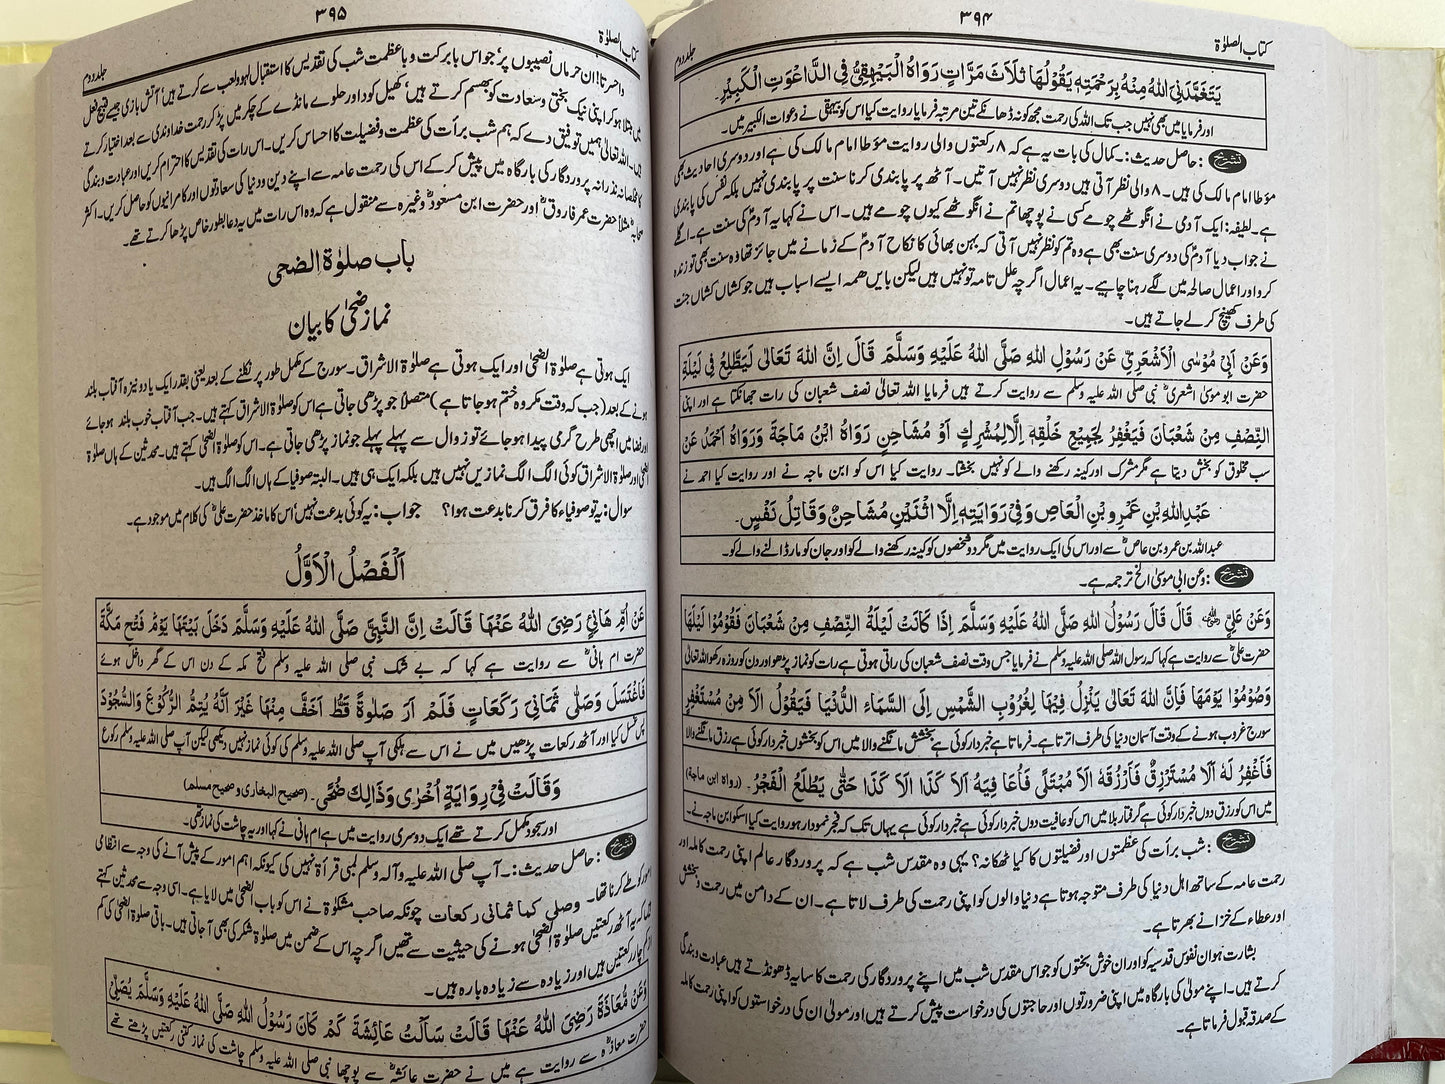 ۳۹۴
کتاب الصلوٰۃ
جلد دوم
یَتَغَمَّدَنِیَ اللہُ مِنْہُ بِرَحْمَتِہٖ یَقُوْلُھَا ثَلَاثَ مَرَّاتٍ رَوَاہُ الْبَیْہَقِیُّ فِی الدَّاعْوَتِ الْکَبِیْرِ۔
اور فرمایا میں بھی نہیں جب تک اللہ کی رحمت مجھ کو نہ ڈھانکے تین مرتبہ فرمایا روایت کیا اس کو بیہقی نے دعوات الکبیر میں۔
تشریح: حاصل حدیث:۔ کمال کی بات یہ ہے کہ ۸ رکعتوں والی روایت مؤطا امام مالک کی ہے اور دوسری احادیث بھی
مؤطا امام مالک کی ہیں۔ ۸ والی نظر آتی ہیں دوسری نظر نہیں آتیں۔ آٹھ پر پابندی کرنا سنت پر پابندی نہیں بلکہ نفس کی پابندی
ہے۔ لطیفہ: ایک آدمی نے انگوٹھے چومے کسی نے پوچھا تم نے انگوٹھے کیوں چومے ہیں۔ اس نے کہا یہ آدمؑ کی سنت ہے۔ اگلے
نے جواب دیا آدمؑ کی دوسری سنت بھی ہے وہ تم کو نظر نہیں آتی کہ بہن بھائی کا نکاح آدمؑ کے زمانے میں جائز تھا وہ سنت بھی تو زندہ
کرو اور اعمال صالحہ میں لگے رہنا چاہیے۔ یہ اعمال اگرچہ علل تامہ تو نہیں ہیں لیکن بایں ھمہ ایسے اسباب ہیں جو کشاں کشاں جنت
کی طرف کھینچ کر لے جاتے ہیں۔
وَعَنْ اَبِیْ مُوْسَی الْاَشْعَرِیِّ عَنْ رَسُوْلِ اللہِ صَلَّی اللہُ عَلَیْہِ وَسَلَّمَ قَالَ اِنَّ اللہَ تَعَالٰی لَیَطَّلِعُ فِیْ لَیْلَۃِ
حضرت ابو موسیٰ اشعریؓ نبی صلی اللہ علیہ وسلم سے روایت کرتے ہیں فرمایا اللہ تعالیٰ نصف شعبان کی رات جھانکتا ہے اور اپنی
النِّصْفِ مِنْ شَعْبَانَ فَیَغْفِرُ لِجَمِیْعِ خَلْقِہٖ اِلَّا لِمُشْرِکٍ اَوْ مُشَاحِنٍ رَوَاہُ ابْنُ مَاجَۃَ وَرَوَاہُ اَحْمَدُ عَنْ
سب مخلوق کو بخش دیتا ہے مگر مشرک اور کینہ رکھنے والے کو نہیں بخشتا۔ روایت کیا اس کو ابن ماجہ نے اور روایت کیا احمد نے
عَبْدِ اللہِ بْنِ عَمْرِو بْنِ الْعَاصِ وَفِیْ رَوَایَتِہٖ اِلَّا اثْنَیْنِ مُشَاحِنٌ وَقَاتِلُ نَفْسٍ۔
عبداللہ بن عمرو بن عاصؓ سے اور اس کی ایک روایت میں مگر دو شخصوں کو کینہ رکھنے والے کو اور جان کو مار ڈالنے والے کو۔
تشریح: وعن ابی موسیٰ الخ ترجمہ ہے۔
وَعَنْ عَلِیٍّ قَالَ قَالَ رَسُوْلُ اللہِ صَلَّی اللہُ عَلَیْہِ وَسَلَّمَ اِذَا کَانَتْ لَیْلَۃُ النِّصْفِ مِنْ شَعْبَانَ فَقُوْمُوْا لَیْلَھَا
حضرت علیؓ سے روایت ہے کہا کہ رسول اللہ صلی اللہ علیہ وسلم نے فرمایا جس وقت نصف شعبان کی راتی ہوتی ہے رات کو نماز پڑھو اور دن کو روزہ رکھو اللہ تعالیٰ
وَصُوْمُوْا یَوْمَھَا فَاِنَّ اللہَ تَعَالٰی یَنْزِلُ فِیْہَا لِغُرُوْبِ الشَّمْسِ اِلَی السَّمَاءِ الدُّنْیَا فَیَقُوْلُ اَلَا مِنْ مُسْتَغْفِرٍ
سورج غروب ہونے کے وقت آسمان دنیا کی طرف اترتا ہے۔ فرماتا ہے خبردار کوئی ہے بخشش مانگنے والا میں اس کو بخشوں خبردار کوئی ہے رزق مانگنے والا
فَاَغْفِرُ لَہٗ اَلَا مُسْتَرْزِقٌ فَاَرْزُقَہٗ اَلَا مُبْتَلًی فَاُعَافِیَہٗ اَلَا کَذَا اَلَا کَذَا حَتّٰی یَطْلُعَ الْفَجْرُ۔ (رواہ ابن ماجۃ)
میں اس کو رزق دوں خبردار کوئی ہے گرفتار بلا میں اس کو عافیت دوں خبردار کوئی ہے خبردار کوئی ہے یہاں تک کہ فجر نمودار ہو روایت کیا اسکو ابن ماجہ نے۔
تشریح: شب برأت کی عظمتوں اور فضیلتوں کا کیا ٹھکانہ؟ یہی وہ مقدس شب ہے کہ پروردگار عالم اپنی رحمت کاملہ اور
رحمت عامہ کے ساتھ اہل دنیا کی طرف متوجہ ہوتا ہے دنیا والوں کو اپنی رحمت کی طرف لاتا ہے۔ ان کے دامن میں رحمت و بخشش
اور عطاء کے خزانے بھرتا ہے۔
بشارت ہو ان نفوس قدسیہ کو اور ان خوش بختوں کو جو اس مقدس شب میں اپنے پروردگار کی رحمت کا سایہ ڈھونڈتے ہیں عبادت و بندگی
کرتے ہیں۔ اپنے مولیٰ کی بارگاہ میں اپنی ضرورتوں اور حاجتوں کی درخواست پیش کرتے ہیں اور مولیٰ ان کی درخواستوں کو اپنی رحمت کاملہ
کے صدقہ قبول فرماتا ہے۔
۳۹۵
کتاب الصلوٰۃ
جلد دوم
واحسرتا! ان حرماں نصیبوں پر جو اس بابرکت و باعظمت شب کی تقدیس کا استقبال لہو و لعب سے کرتے ہیں آتش بازی جیسے قبیح فعل
میں مبتلا ہو کر اپنی نیک بختی و سعادت کو بھسم کرتے ہیں کھیل کود اور حلوے مانڈے کے چکر میں پڑ کر رحمت خداوندی سے بعد اختیار کرتے
ہیں۔ اللہ تعالیٰ ہمیں توفیق دے کہ ہم شب برأت کی عظمت و فضیلت کا احساس کریں۔ اس رات کی تقدیس کا احترام کریں اور عبادت و بندگی
کا مخلصانہ نذرانہ پروردگار کی بارگاہ میں پیش کر کے اس کی رحمت عامہ سے اپنے دین و دنیا کی سعادتوں اور کامرانیوں کو حاصل کریں۔ اکثر
صحابہؓ مثلاً حضرت عمر فاروقؓ اور حضرت ابن مسعودؓ وغیرہ سے منقول ہے کہ وہ اس رات میں یہ دعا بطور خاص پڑھا کرتے تھے۔
باب صلوٰۃ الضحی
نماز ضحیٰ کا بیان
ایک ہوتی ہے صلوٰۃ الضحیٰ اور ایک ہوتی ہے صلوٰۃ الاشراق۔ سورج کے مکمل طور پر نکلنے کے بعد یعنی بقدر ایک یا دو نیزہ آفتاب بلند
ہونے کے بعد (جب کہ وقت مکروہ ختم ہو جاتا ہے) متصلاً جو پڑھی جاتی ہے اس کو صلوٰۃ الاشراق کہتے ہیں۔ جب آفتاب خوب بلند ہو جائے
اور فضا میں اچھی طرح گرمی پیدا ہو جائے تو زوال سے پہلے پہلے جو نماز پڑھی جاتی ہے۔ اس کو صلوٰۃ الضحیٰ کہتے ہیں۔ محدثین کے ہاں صلوٰۃ
الضحیٰ اور صلوٰۃ الاشراق کوئی الگ الگ نمازیں نہیں ہیں بلکہ ایک ہی ہیں۔ البتہ صوفیا کے ہاں الگ الگ ہیں۔
سوال: یہ تو صوفیاء کا فرق کرنا بدعت ہوا؟ جواب: یہ کوئی بدعت نہیں اس کا ماخذ حضرت علیؓ کی کلام میں موجود ہے۔
اَلْفَصْلُ الْاَوَّلُ
عَنْ اُمِّ ھَانِیٍٔ رَضِیَ اللہُ عَنْہَا قَالَتْ اِنَّ النَّبِیَّ صَلَّی اللہُ عَلَیْہِ وَسَلَّمَ دَخَلَ بَیْتَھَا یَوْمَ فَتْحِ مَکَّۃَ
حضرت ام ہانیؓ سے روایت ہے کہا کہ بے شک نبی صلی اللہ علیہ وسلم فتح مکہ کے دن اس کے گھر داخل ہوئے
فَاغْتَسَلَ وَصَلّٰی ثَمَانِیَ رَکَعَاتٍ فَلَمْ اَرَ صَلٰوۃً قَطُّ اَخَفَّ مِنْھَا غَیْرَ اَنَّہٗ یُتِمُّ الرُّکُوْعَ وَالسُّجُوْدَ
پس غسل کیا اور آٹھ رکعات پڑھیں میں نے اس سے ہلکی آپ صلی اللہ علیہ وسلم کی کوئی نماز نہیں دیکھی لیکن آپ صلی اللہ علیہ وسلم رکوع
وَقَالَتْ فِیْ رِوَایَۃٍ اُخْرٰی وَذَالِکَ ضُحًی۔ (صحیح البخاری و صحیح مسلم)
اور سجود مکمل کرتے تھے ایک دوسری روایت میں ہے ام ہانی نے کہا اور یہ چاشت کی نماز تھی۔
تشریح: حاصل حدیث:۔ آپ صلی اللہ علیہ وآلہ وسلم لمبی قرأۃ نہیں کی کیونکہ اہم امور کے پیش آنے کی وجہ سے انتظامی
امور کو طے کرنا تھا۔ وصلی کما ثمانی رکعات چونکہ صاحب مشکوٰۃ نے اس کو باب الضحیٰ میں لایا ہے۔ اسی وجہ سے محدثین کہتے
کہ یہ آٹھ رکعتیں صلوٰۃ الضحیٰ ہونے کی حیثیت سے تھیں اگرچہ اس کے ضمن میں صلوٰۃ شکر کی بھی آ جاتی ہیں۔ باقی صلوٰۃ الضحیٰ کی کم
از کم چار رکعتیں ہیں اور زیادہ سے زیادہ بارہ ہیں۔
وَعَنْ مُّعَاذَۃَ رَضِیَ اللہُ عَنْہَا قَالَتْ سَاَلْتُ عَائِشَۃَ کَمْ کَانَ رَسُوْلُ اللہِ صَلَّی اللہُ عَلَیْہِ وَسَلَّمَ یُصَلِّیْ
حضرت معاذہ سے روایت ہے میں نے حضرت عائشہؓ سے پوچھا نبی صلی اللہ علیہ وسلم چاشت کی نماز کتنی رکعتیں پڑھتے تھے